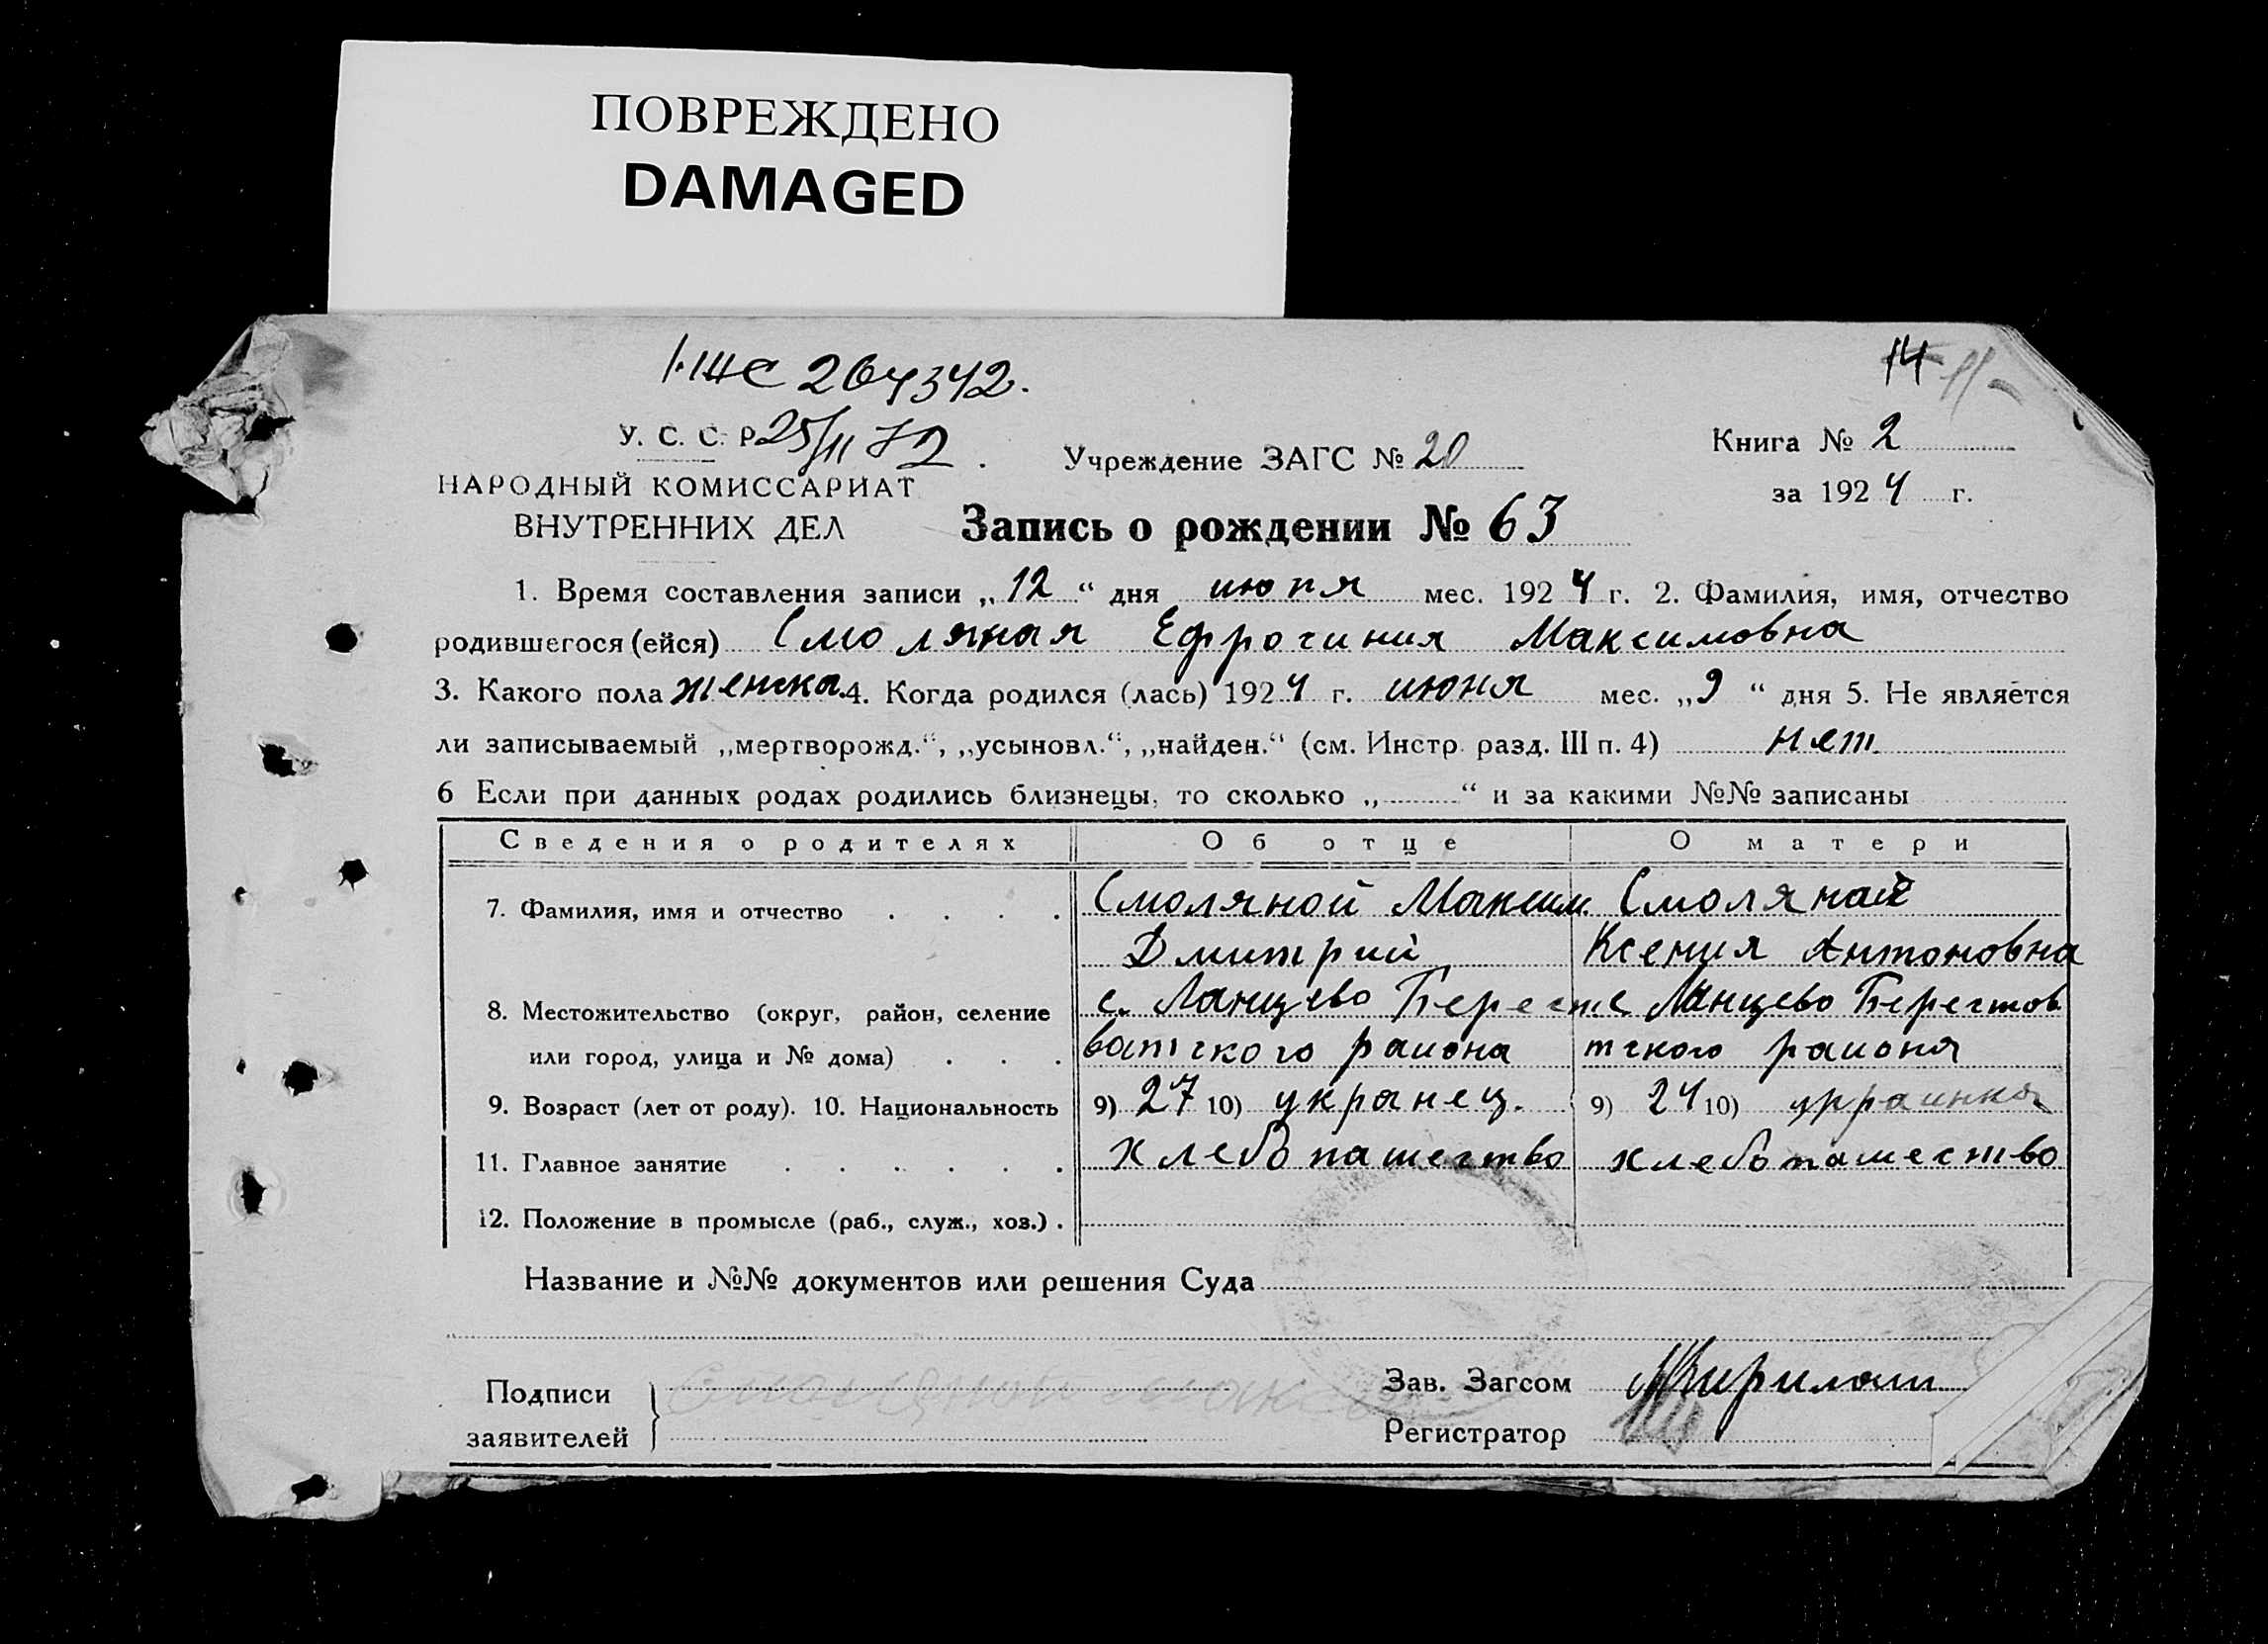 ПОВРЕЖДЕНО
DAMAGED
14
У. С. С. Р. 25/II 72.
Учреждение ЗАГС № 20
Книга № 2
НАРОДНЫЙ КОМИССАРИАТ
за 1924 г.
ВНУТРЕННИХ ДЕЛ
Запись о рождении № 63
1. Время составления записи „12“ дня июня мес. 1924 г. 2. Фамилия, имя, отчество
родившегося (ейся) Смоляная Ефросиния Максимовна
3. Какого пола женска. 4. Когда родился (лась) 1924 г. июня мес. „9“ дня 5. Не является
ли записываемый „мертворожд.“, „усыновл.“, „найден.“ (см. Инстр. разд. III п. 4) нет
6 Если при данных родах родились близнецы, то сколько „ “ и за какими №№ записаны
Сведения о родителях Об отце О матери
7. Фамилия, имя и отчество . . . . Смоляной Максим Смоляная
Дмитрий Ксения Антоновна
8. Местожительство (округ, район, селение с. Ланцево Берест с Ланцево Берестов
или город, улица и № дома) . . . ватского района тского района
9. Возраст (лет от роду). 10. Национальность 9) 27 10) укранец. 9) 24 10) украинка
11. Главное занятие . . . . . . хлебопашество хлебопашество
12. Положение в промысле (раб., служ., хоз.) .
Название и №№ документов или решения Суда
Подписи
заявителей
Смоляной
Зав. Загсом
Регистратор